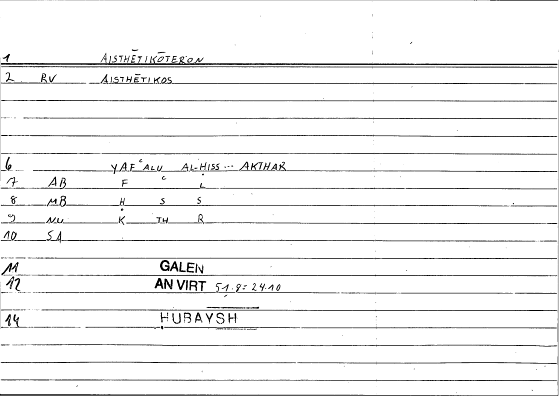 1 AISTHĒTIKŌTERON
2 RV AISTHĒTIKOS
6 YAFʿALU AL-ḤISS ... AKTHAR
7 AB F ʿ L
8 MB Ḥ S S
9 NU K TH R
10 SA
11 GALEN
12 AN VIRT 51.8 = 24.10
14 ḤUBAYSH